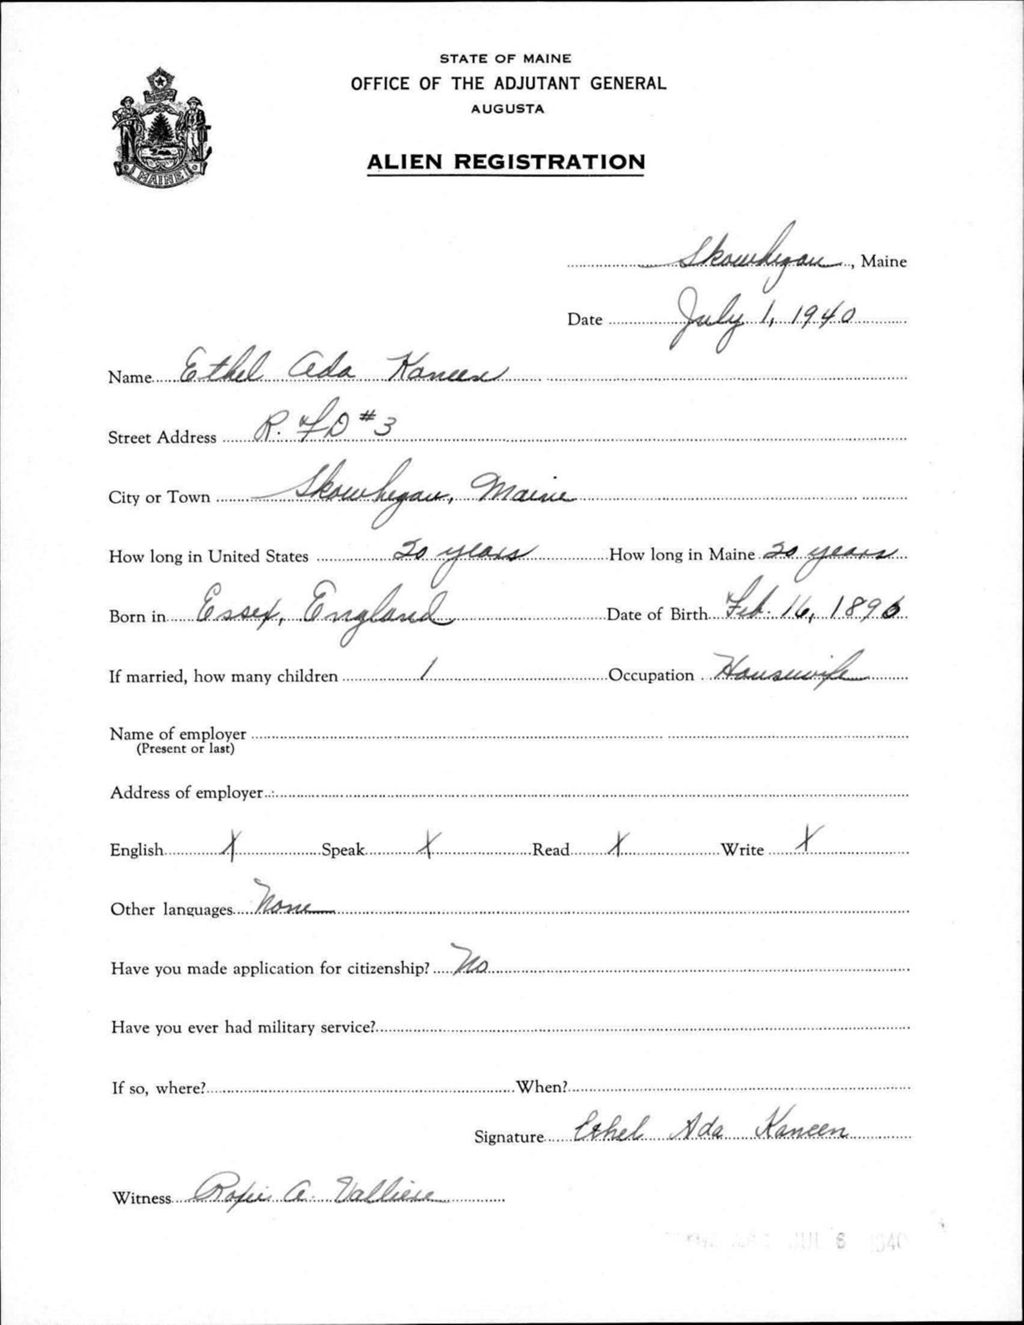 STATE OF MAINE
OFFICE OF THE ADJUTANT GENERAL
AUGUSTA
MAINE
ALIEN REGISTRATION
Skowhegan, Maine
Date July 1, 1940
Name Ethel Ada Kaneen
Street Address R. F D #3
City or Town Skowhegan, Maine
How long in United States 20 years How long in Maine 20 years
Born in Essex, England Date of Birth Feb. 16, 1896
If married, how many children 1 Occupation Housewife
Name of employer
(Present or last)
Address of employer
English X Speak X Read X Write X
Other languages None
Have you made application for citizenship? No
Have you ever had military service?
If so, where? When?
Signature Ethel Ada Kaneen
Witness A. Valliere
JUL 6 1940